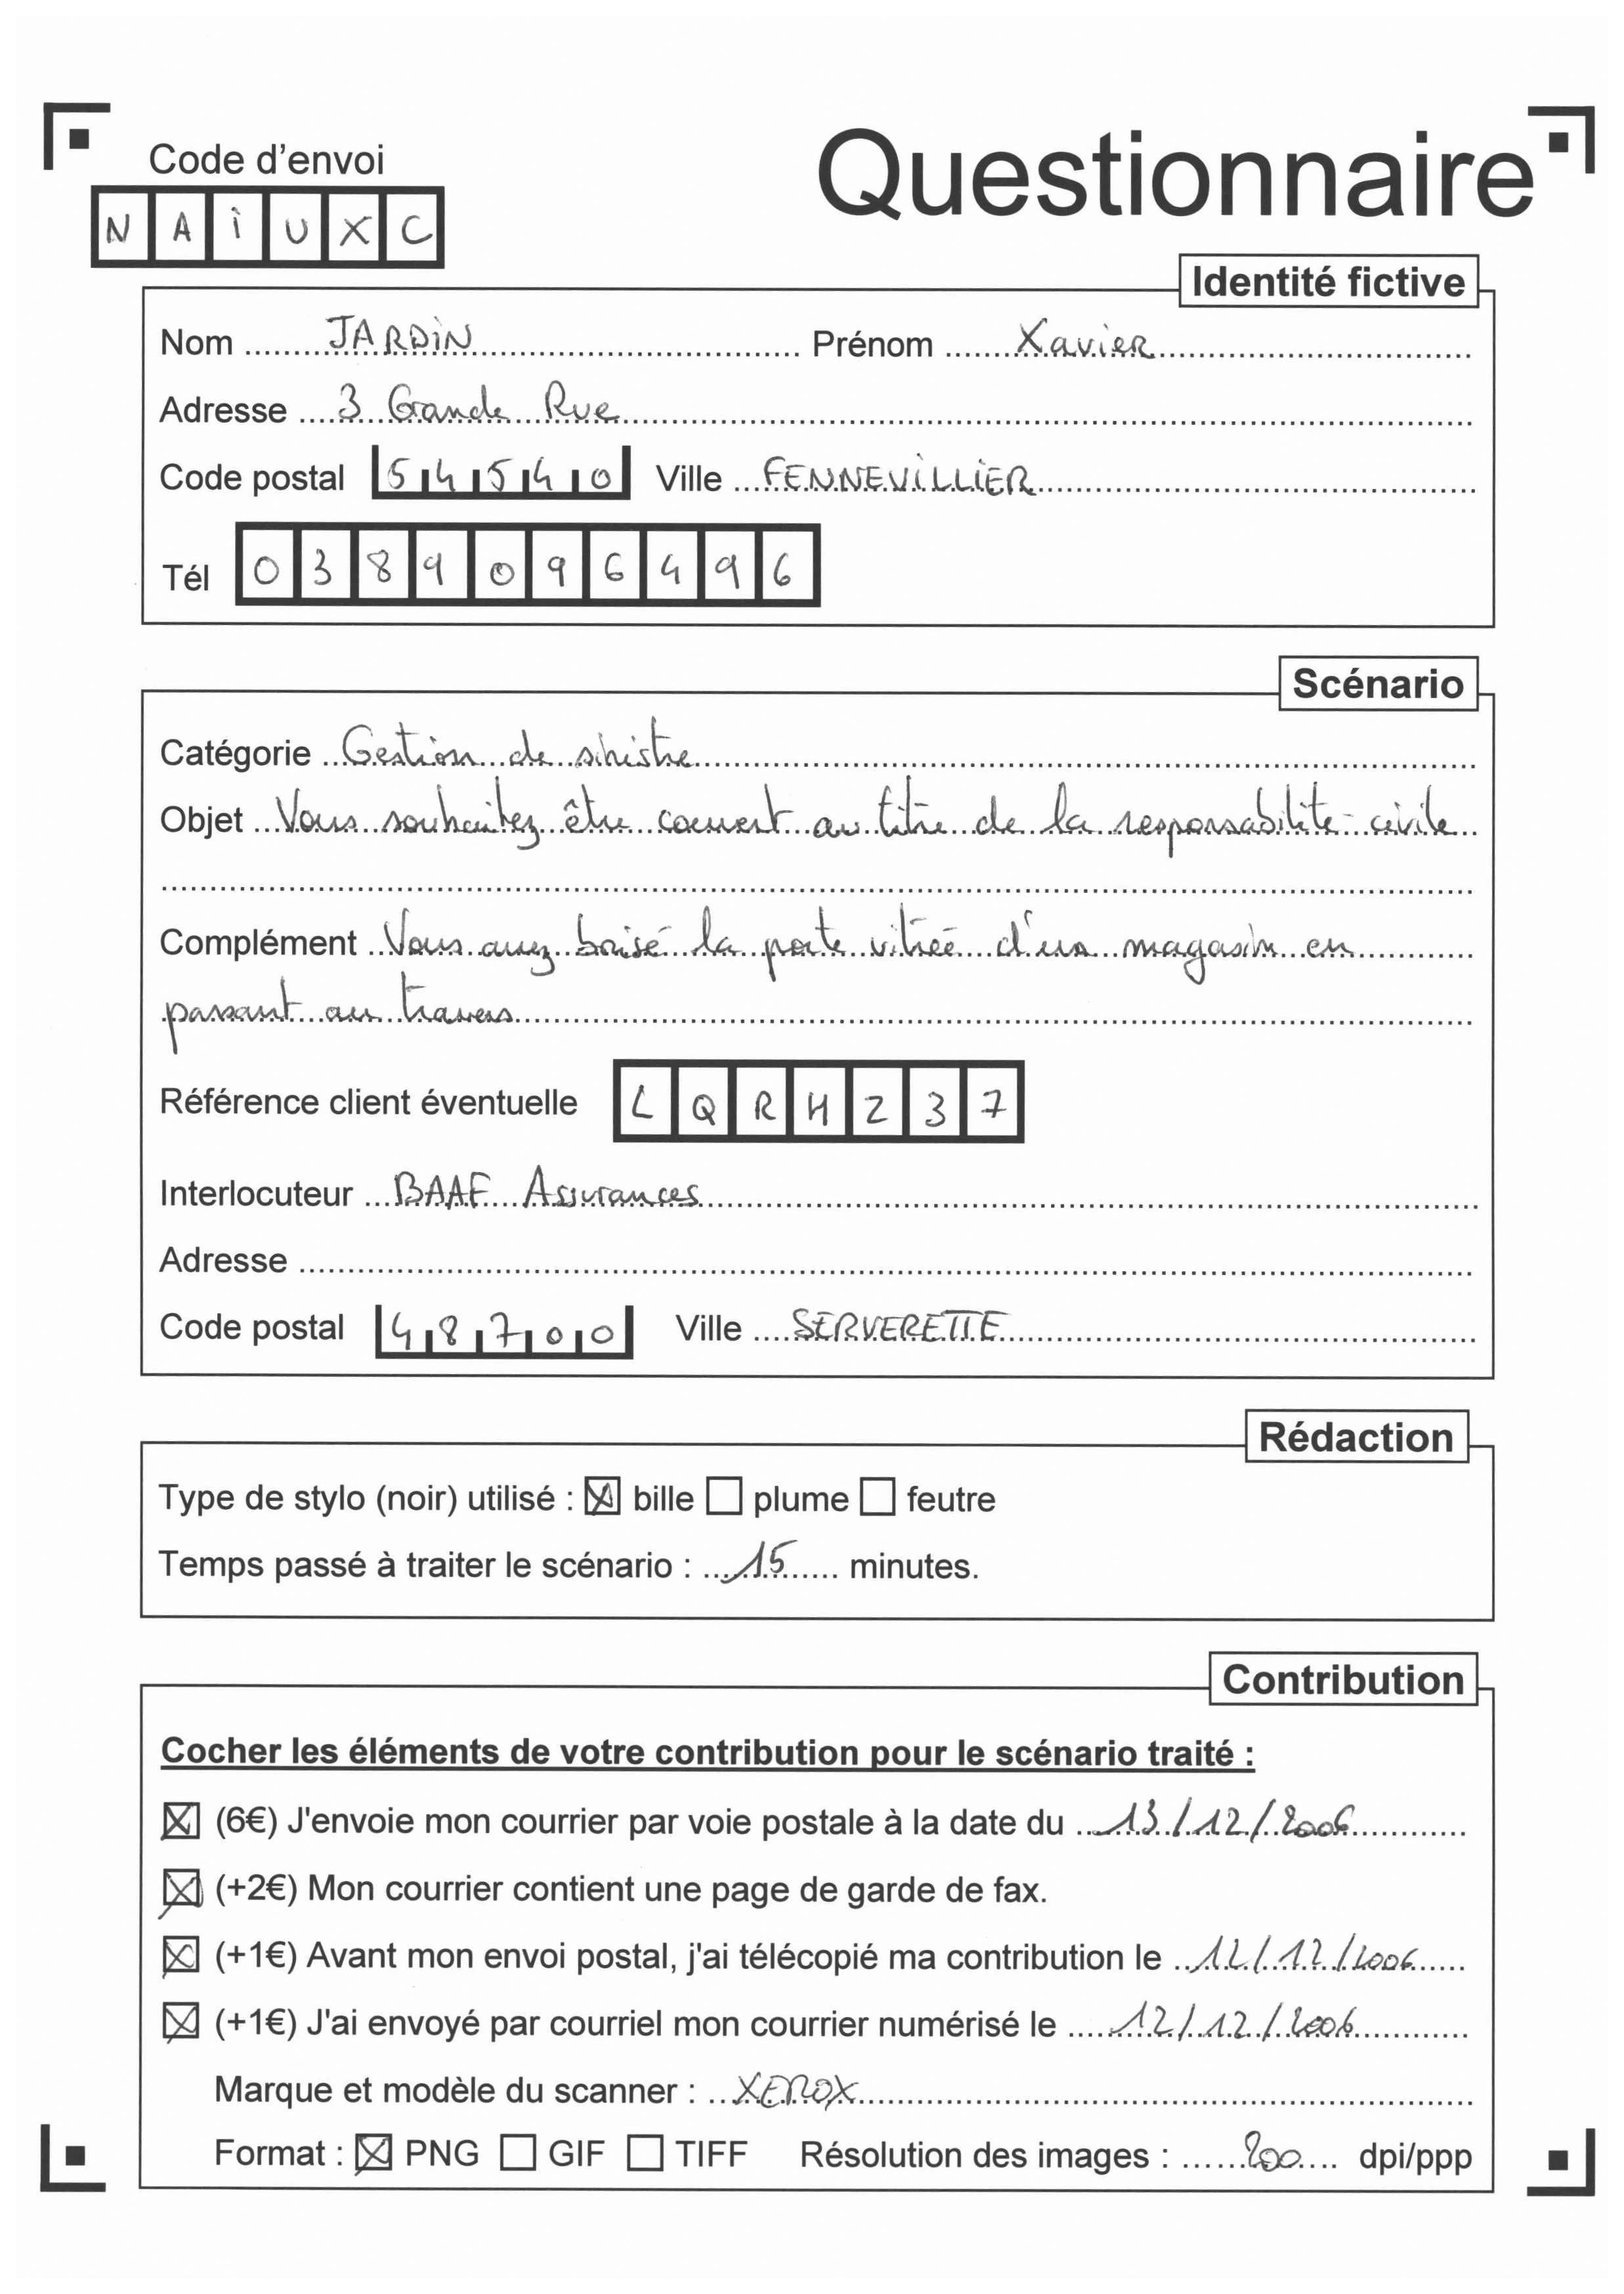 Code d'envoi
Questionnaire
N A I U X C
Identité fictive
Nom JARDIN Prénom Xavier
Adresse 3 Grande Rue
Code postal 54540 Ville FENNEVILLIER
Tél 0389096496
Scénario
Catégorie Gestion de sinistre
Objet Vous souhaitez être couvert au titre de la responsabilité civile
Complément Vous avez brisé la porte vitrée d'un magasin en
passant au travers
Référence client éventuelle LQRH237
Interlocuteur BAAF Assurances
Adresse
Code postal 48700 Ville SERVERETTE
Rédaction
Type de stylo (noir) utilisé : ☒ bille ☐ plume ☐ feutre
Temps passé à traiter le scénario : 15 minutes.
Contribution
Cocher les éléments de votre contribution pour le scénario traité :
☒ (6€) J'envoie mon courrier par voie postale à la date du 13/12/2006
☒ (+2€) Mon courrier contient une page de garde de fax.
☒ (+1€) Avant mon envoi postal, j'ai télécopié ma contribution le 12/12/2006
☒ (+1€) J'ai envoyé par courriel mon courrier numérisé le 12/12/2006
Marque et modèle du scanner : XEROX
Format : ☒ PNG ☐ GIF ☐ TIFF Résolution des images : 200 dpi/ppp